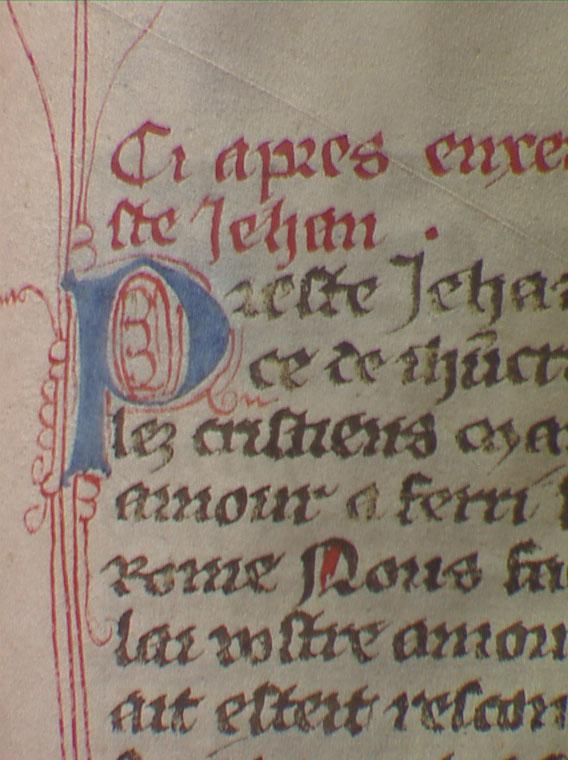 Ci apres enxe
ste Jehan .
Preste Jeha
ce de ihūcr
lez cristiens
amour a ferri
Rome Nous
lai vostre amou
ait esteit rescon